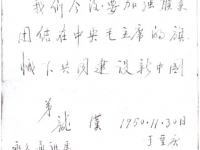 我们今后要加强
团结在中央毛主席的旗
帜下共同建设新中国
弟
龙 汉 1950.11.30日
于重庆